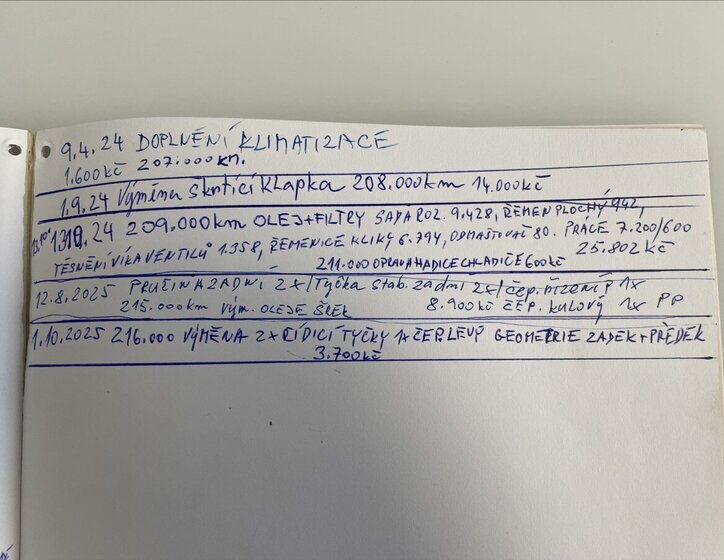 9.4.24 DOPLNĚNÍ KLIMATIZACE
1.600KČ 207.000KM.
1.9.24 Výměna Skrtící Klapka 208.000km 14.000Kč
24 209.000KM OLEJ+FILTRY SADA ROZ. 9.428, ŘEMEN PLOCHÝ 942,
TĚSNĚNÍ VÍKA VENTILŮ 1.358, ŘEMENICE KLIKY 6.794, ODMAŠŤOVAČ 80. PRÁCE 7.200/600
25.802 KČ
211.000 OPRAVA HADICE CHLADIČE 600KČ
12.8.2025 PRUŽINA ZADNÍ 2x/Tyčka Stab. zadní 2x/čep. řízení P 1x
215.000km Vým. OLEJE 8.900KČ ČEP. KULOVÝ 1x PP
1.10.2025 216.000 VÝMĚNA 2x ŘÍDICÍ TYČKY 1x ČEP LEVÝ GEOMETRIE ZADEK+PŘEDEK
3.700KČ